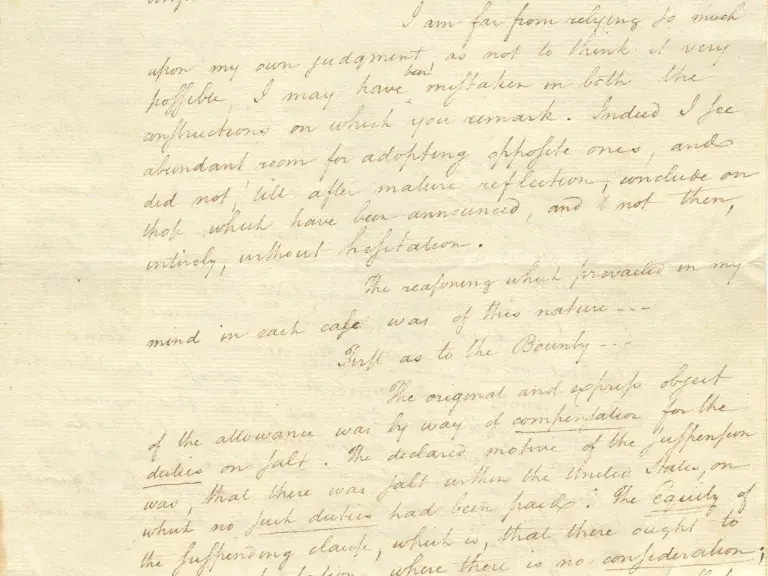 I am far from relying so much
upon my own judgment as not to think it very
possible, I may have been mistaken in both the
constructions on which you remark. Indeed I see
abundant room for adopting opposite ones, and
did not, 'till after mature reflection, conclude on
those which have been announced, and not then,
entirely, without hesitation.
The reasoning which prevailed in my
mind in each case was of this nature ---
First as to the Bounty ---
The original and express object
of the allowance was by way of compensation for the
duties on salt. The declared motive of the suspension
was, that there was salt within the United States, on
which no such duties had been paid: The Equity of
the suspending clause, which is, that there ought to
where there is no consideration;